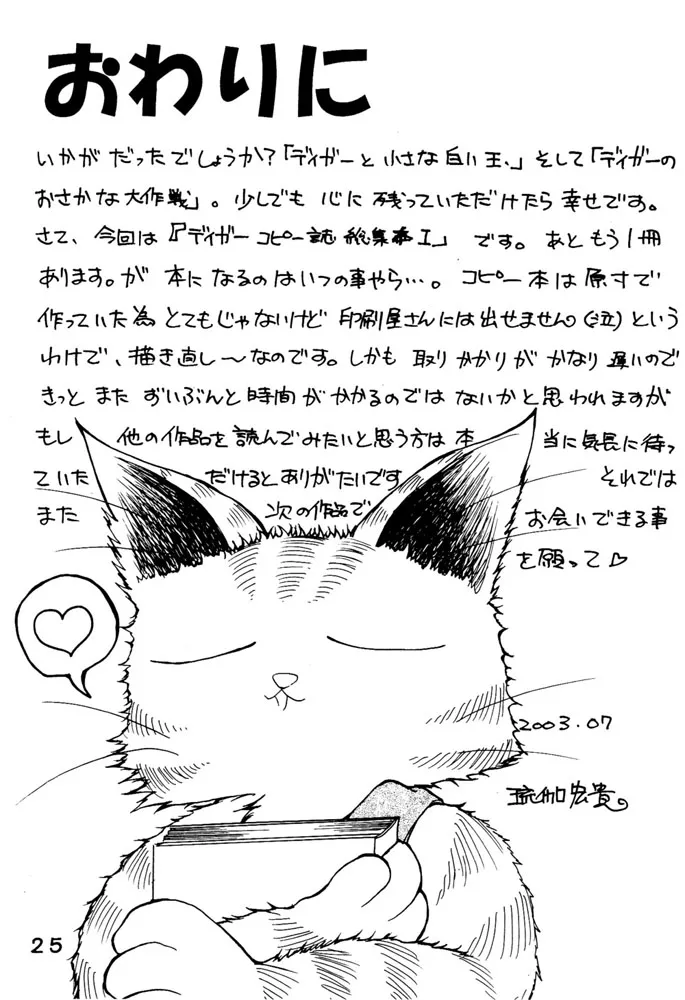 おわりに
いかが だったでしょうか?「ディガーと 小さな 白い 玉、」 そして「ディガーの
おさかな 大作戦」。 少しでも 心に 残っていただけたら 幸せです。
さて、 今回は 『ディガー コピー誌 総集本 I』 です。 あと もう 1冊
あります。が 本に なるのは いつの事やら…。 コピー本は 原寸で
作っていた為 とてもじゃないけど 印刷屋さんには 出せません(泣) という
わけで、描き直し〜なのです。しかも 取りかかりが かなり 遅いので
きっと また ずいぶんと 時間が かかるのでは ないかと 思われますが
もし 他の作品を 読んでみたいと 思う方は 本当に 気長に 待っ
ていた だけると ありがたいです それでは
また 次の作品で お会いできる事
を 願って♡
2003.07
宏貴。
25